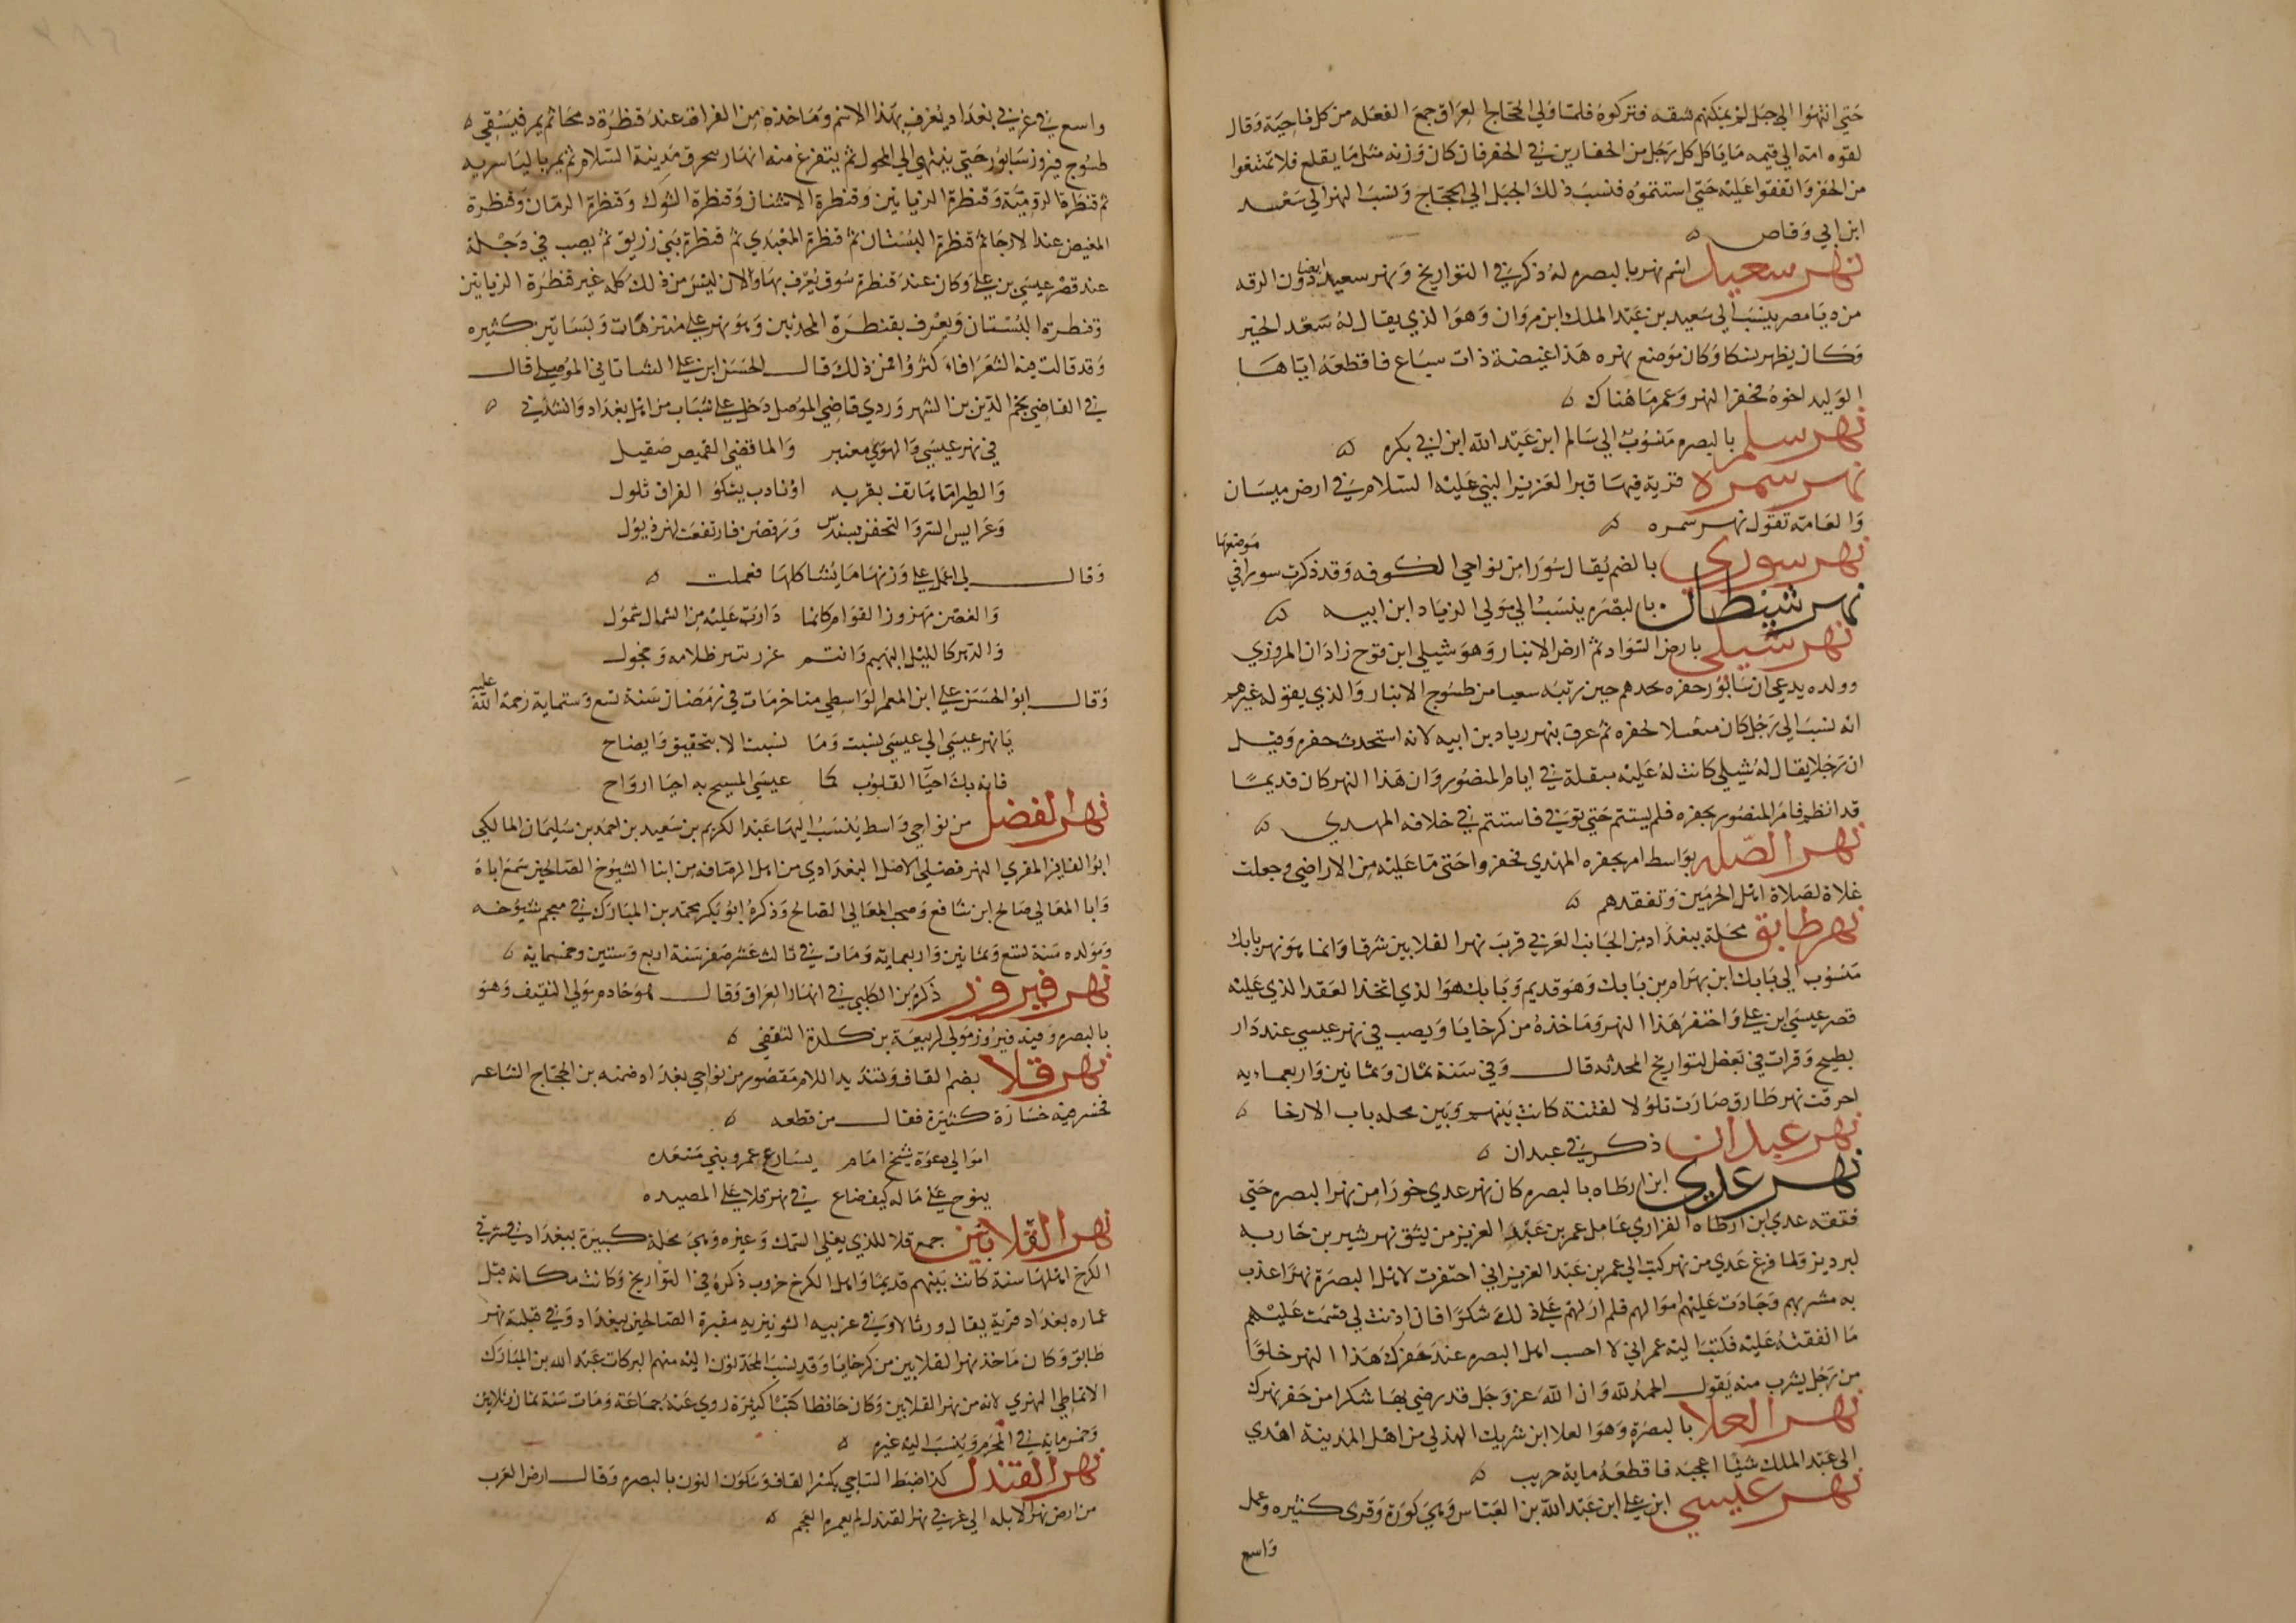 حَتي انتهوا الي جبل لم يمكنهم شقه فتركوه فلما ولي الحجاج العراق جمع الفعله من كل ناحية وقال
لقومه انظروا الي قيمه ما ياكل كل رجل من الحفارين في الحفر فان كان وزنه مثل ما يقلع فلا تمتنعوا
من الحفر وانفقوا عليه حتي استتموه فنسب ذلك الجبل الي الحجاج ونسب النهر الي سعد
ابن ابي وقاص
نهر سعيد اسم نهر بالبصره له ذكر في التواريخ ونهر سعيد ايضا دون الرقه
من ديار مصر ينسب الي سعيد بن عبد الملك ابن مروان وهو الذي يقال له سعد الخير
وكان يظهر نسكا وكان موضع نهره هذا غيضة ذات سباع فاقطعه اياها
الوليد اخوه فحفر النهر وعمر ما هناك
نهر سلم بالبصره منسوب الي سالم ابن عبد الله ابن ابي بكره
نهر سمرة قرية فيها قبر العزير النبي عليه السلام في ارض ميسان
والعامة تقول نهر سمره
نهر سوري بالضم يقال سورا من نواحي الكوفه وقد ذكرت سورا في موضعها
نهر شيطان بالبصره ينسب الي مولي الزياد ابن ابيه
نهر شيلي بارض السواد ثم ارض الانبار وهو شيلي ابن فرخ زادان المروزي
وولده يدعي ان سابور حفره لجدهم حين رتبه بنغيا من طسوج الانبار والذي يقوله غيرهم
انه نسب الي رجل كان متقبلا لحفره ثم عرف بنهر زياد بن ابيه لانه استحدث حفره وقيل
ان رجلا يقال له شيلي كانت له عليه مبقلة في ايام المنصور وان هذا النهر كان قديما
قد انطم فامر المنصور بحفره فلم يستتم حتي توفي فاستتم في خلافه المهدي
نهر الصله بواسط امر بحفره المهدي فحفروا حتي ما عليه من الاراضي وجعلت
غلاة لصلاة اهل الحرمين وتفقدهم
نهر طابق محلة ببغداد من الجانب الغربي قرب نهر القلابين شرقا وانما هو نهر بابك
منسوب الي بابك ابن بهرام بن بابك وهو قديم وبابك هو الذي اتخذ العقد الذي عليه
قصر عيسي ابن علي واحتفر هذا النهر وماخذه من كرخايا ويصب في نهر عيسي عند دار
بطيخ وقرات في بعض التواريخ المحدثه قال وفي سنة ثمان وثمانين واربعمايه
احرقت نهر طابق وصارت تلولا لفتنة كانت بينهم وبين محله باب الارحا
نهر عبدان ذكر في عبدان
نهر عدي ابن ارطاه بالبصره كان نهر عدي خورا من نهر البصره حتي
فتقه عدي ابن ارطاه الفزاري عامل عمر بن عبد العزيز من بثق نهر شيرين جاريه
ابرويز ولما فرغ عدي من نهر كتب الي عمر بن عبد العزيز اني احتفرت لاهل البصرة نهرا عذب
به مشربهم وجادت عليهم اموالهم فلم ار لهم علي ذلك شكرا فان اذنت لي قسمت عليهم
ما انفقته عليه فكتب اليه عمر اني لا احسب اهل البصره عند حفرك هذا النهر خلوا
من رجل يشرب منه يقول الحمد لله وان الله عز وجل قد رضي بها شكرا من حفر نهرك
نهر العلا بالبصرة وهو العلا ابن شريك الهذلي من اهل المدينة اهدي
الي عبد الملك شيا اعجبه فاقطعه ماية جريب
نهر عيسي ابن علي ابن عبد الله بن العباس وهي كورة وقرى كثيره وعمل
واسع
واسع في غربي بغداد يعرف بهذا الاسم وماخذه من الفرات عند قنظرة دمما ثم يمر فيسقي
طسوج فيروز سابور حتي ينتهي الي المحول ثم يتفرع منه انهار تخرق مدينة السلام ثم يمر بالياسريه
ثم قنطرة الروميه وقنطرة الزياتين وقنطرة الاشنان وقنطرة الشوك وقنظرة الرمان وقنظرة
المغيض عند الارحا ثم قنظرة البستان ثم قنظرة المعبدي ثم قنظرة بني زريق ثم يصب في دجلة
عند قصر عيسي بن علي وكان عند قنطرة سوق يعرف بها والان ليس من ذلك كله غير قنطرة الزياتين
وقنطرة البستان ويعرف بقنطرة المحدثين وهو نهر علي متنزهات وبساتين كثيره
وقد قالت فيه الشعرا فاكثروا فمن ذلك قال الحسن ابن علي الشاتاني الموصلي قال
في القاضي نجم الدين بن الشهروردي قاضي الموصل دخل علي شباب من اهل بغداد وانشدني
في نهر عيسي والهوي معنبر والما فضي القميص صقيل
والطير اما هاتف بقرينه او نادب يشكو الفراق ثلول
وعرايس السرو التحفن بسندس ورقصن فارتفعت لهن ذيول
وقال لي اعمل علي وزنها ما يشاكلها فعملت
والغصن مهزوز القوام كانما دارت عليه من الشمال شمول
والدهر كالليل البهيم وانتم غرر تنير ظلامه وحجول
وقال ابو الحسن علي ابن المعمر الواسطي متاخر مات في رمضان سنة تسع وستماية رحمة الله عليه
يا نهر عيسي الي عيسي نسبت وما نسبت الا بتحقيق وايضاح
فانه بك احيا القلوب كما عيسي المسيح به احيا ارواح
نهر الفضل من نواحي واسط ينسب اليها عبد الكريم بن سعيد بن احمد بن سليمان المالكي
ابو الفايز المقري النهر فضلي الاصل البغدادي من اهل الرصافه من ابنا الشيوخ الصالحين سمع اباه
وابا المعالي صالح ابن شافع وصحب المعالي الصالح وذكره ابو بكر محمد بن المبارك في معجم شيوخه
ومولده سنة تسع وثمانين واربعماية ومات في ثالث عشر صفر سنة اربع وستين وخمسماية
نهر فيروز ذكره ابن الكلبي في انهار العراق وقال هو خادم مولي الثقيف وهو
بالبصره وقيل فيروز مولي لربيعة بن كلدة الثقفي
نهر قلا بضم القاف وتشديد اللام مقصور من نواحي بغداد ضمنه بن الحجاج الشاعر
فخسر فيه خسارة كثيرة فقال من قطعه
امولاي دعوة شيخ امام يسارع عمرو بني مسعده
ينوح علي ماله كيف ضاع في نهر قلا علي المصيده
نهر القلابين جمع قلا للذي يقلي السمك وغيره وهي محلة كبيرة ببغداد في شرقي
الكرخ اهلها سنة كانت بينهم قديما واهل الكرخ حروب ذكره في التواريخ وكانت مكانه قبل
عماره بغداد قرية يقال ورثالا وفي غربيه الشونيزيه مقبرة الصالحين ببغداد وفي قبلة نهر
طابق وكان ماخذ نهر القلابين من كرخايا وقد نسب المحدثون اليه منهم البركات عبد الله بن المبارك
الانماطي النهري لانه من نهر القلابين وكان حافظا كتب كثيرة روي عنه جماعة ومات سنة ثمان وثلاثين
وخمسماية في المحرم وينسب اليه غيره
نهر القندل كذا ضبط الساجي بكسر القاف وسكون النون بالبصره وقال ارض العرب
من ارض نهر الابله الي غربي نهر القندل لم يعمرها العجم